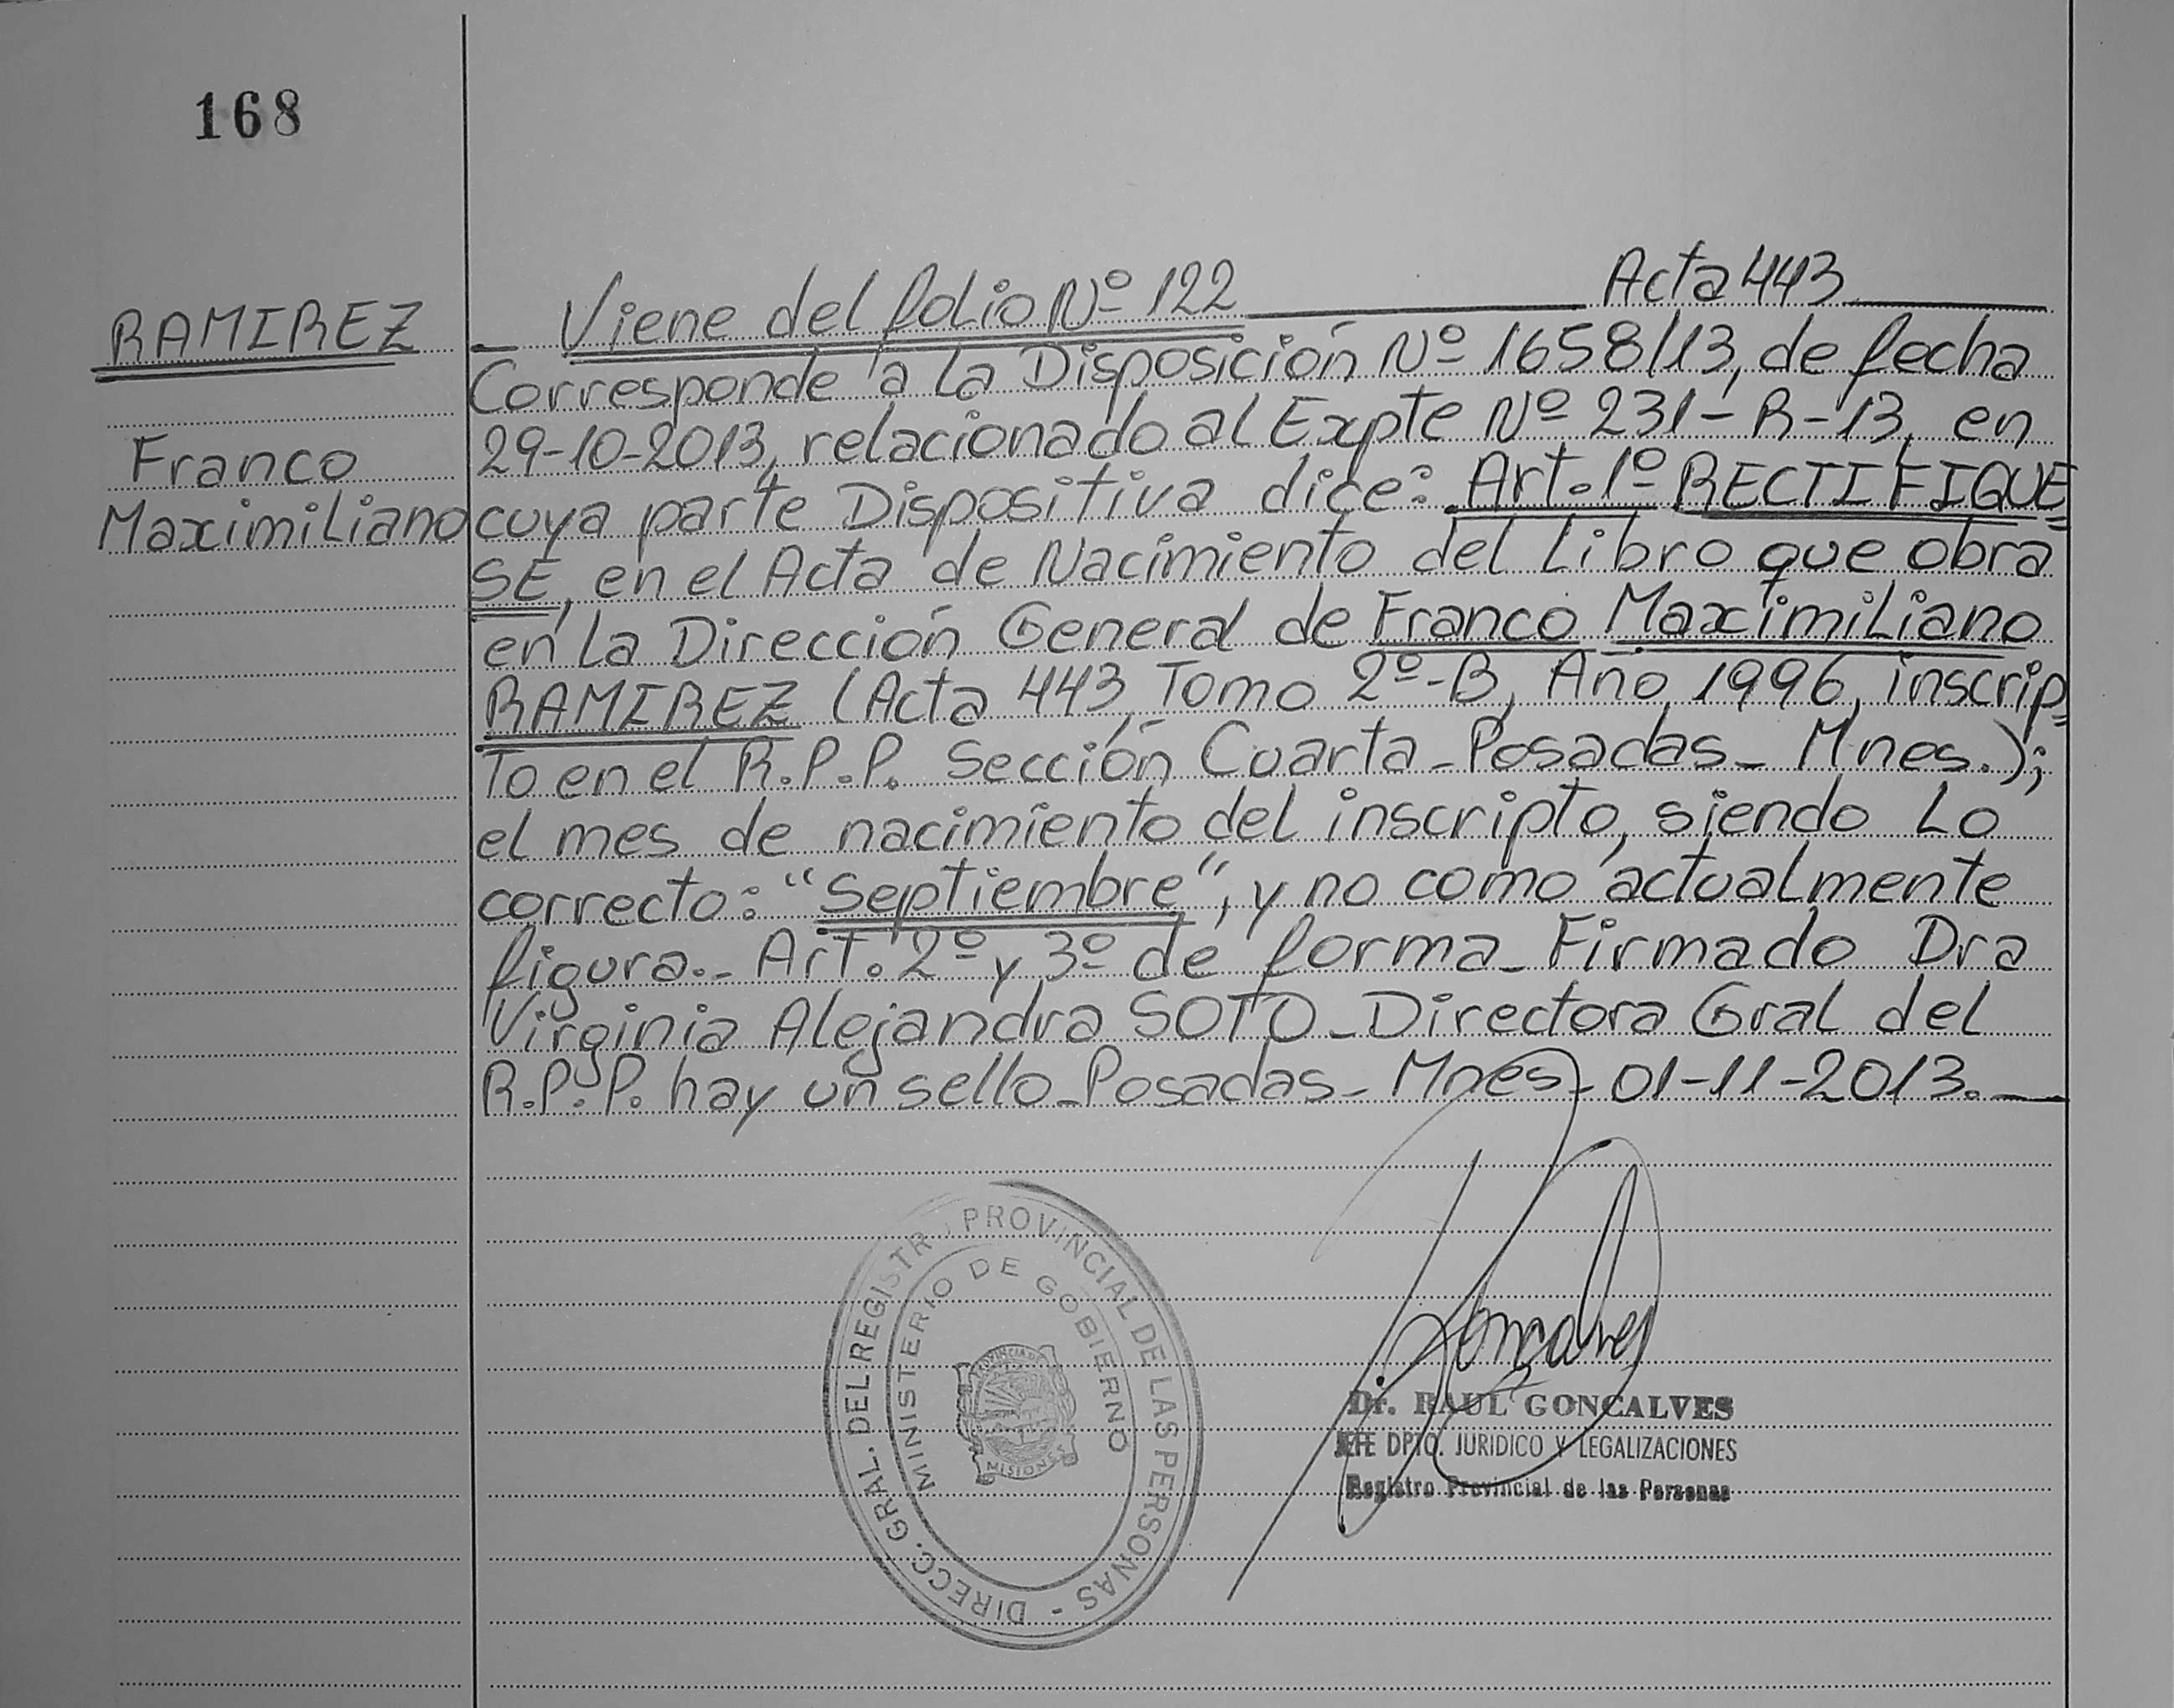 168
RAMIREZ
Franco
Maximiliano
Viene del folio Nº 122 Acta 443
Corresponde a la Disposición Nº 1658/13, de fecha
29-10-2013, relacionado al Expte Nº 231-R-13, en
cuya parte Dispositiva dice: Art. 1º RECTIFIQUE=
SE, en el Acta de Nacimiento del Libro que obra
en la Dirección General de Franco Maximiliano
RAMIREZ (Acta 443, Tomo 2º-B, Año 1996, inscrip=
to en el R.P.P. Sección Cuarta - Posadas - Mnes.);
el mes de nacimiento del inscripto, siendo lo
correcto: "Septiembre", y no como actualmente
figura.- Art. 2º y 3º de forma - Firmado Dra
Virginia Alejandra SOTO - Directora Gral del
R.P.P. hay un sello - Posadas - Mnes - 01-11-2013.
DIRECC. GRAL. DEL REGISTR PROVINCIAL DE LAS PERSONAS -
MINISTERIO DE GOBIERNO
PROVINCIA DE
MISIONES
Gonçalves
Dr. RAUL GONÇALVES
JEFE DPTO. JURIDICO Y LEGALIZACIONES
Registro Provincial de las Personas